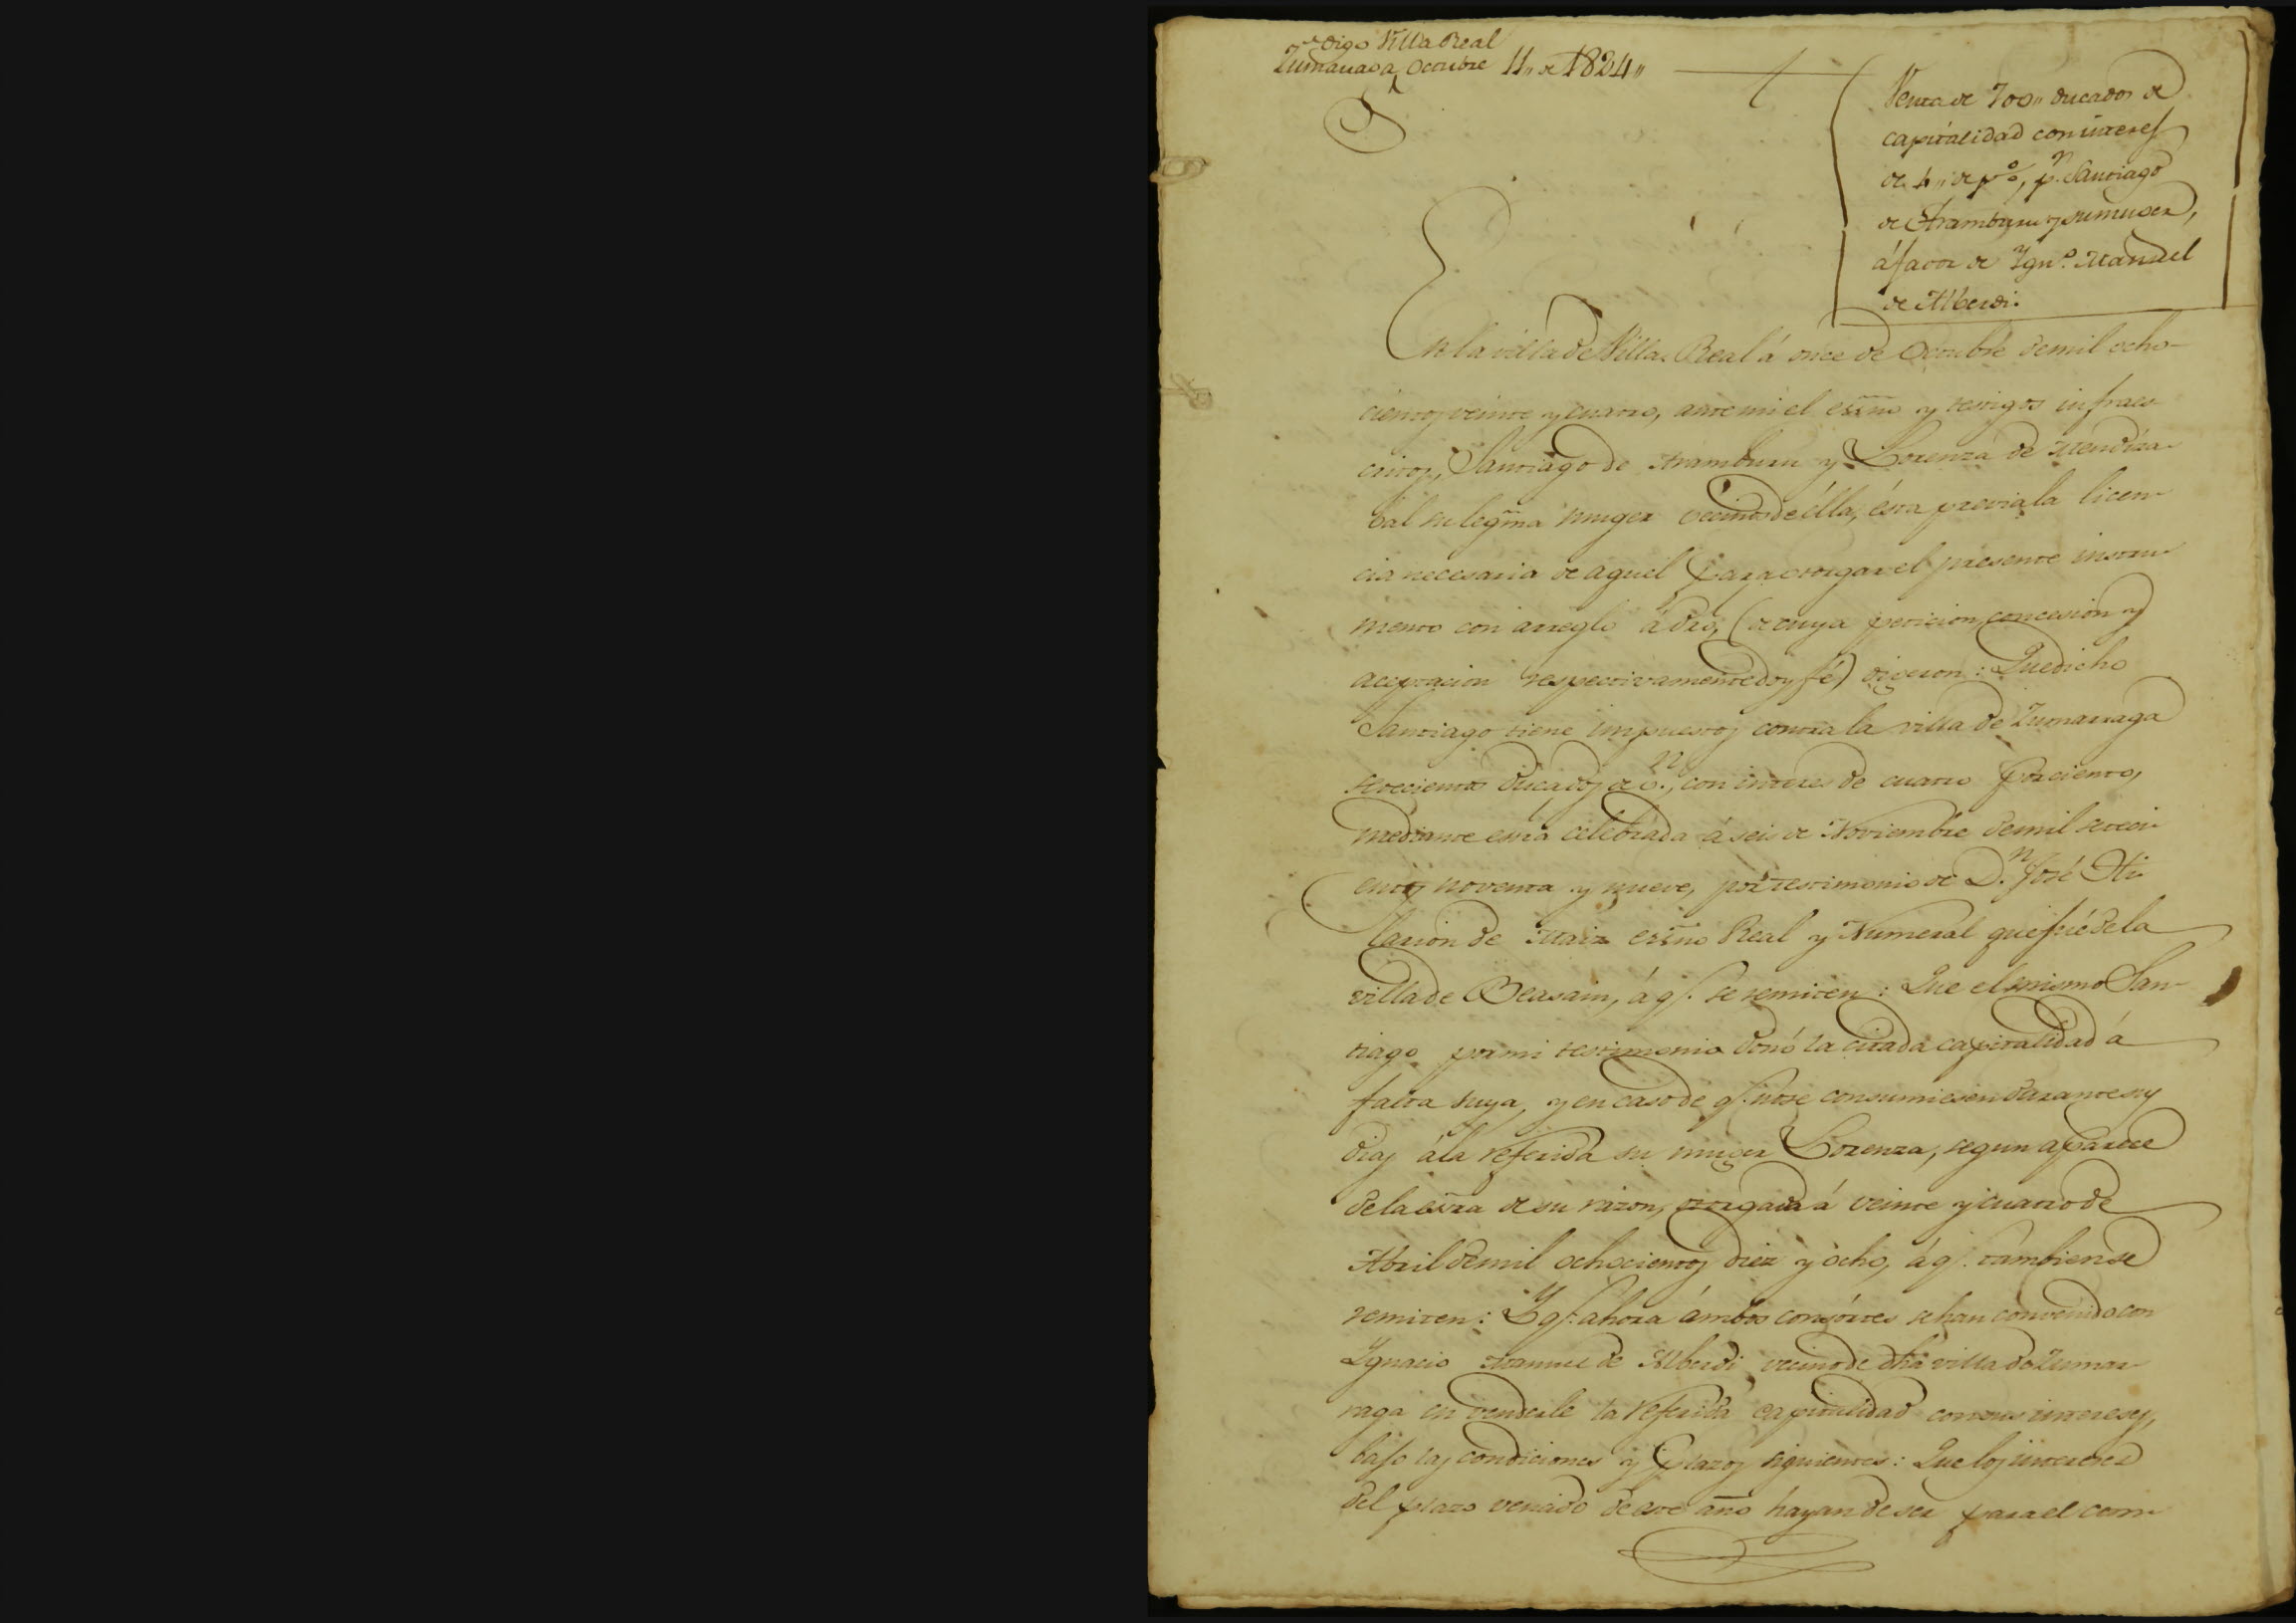 digo Villa Real
Zumarraga Octubre 11,, de 1824,,
Venta de 700,, ducados de
capitalidad con interes
de 4,, de p%, p.r Santiago
de Aramburu y su muger,
á favor de Ygn.o Manuel
de Alberdi.
En la villa de Villa Real á once de Octubre de mil ocho-
cientos veinte y cuatro, ante mi el esno y testigos infraes-
critos, Santiago de Aramburu y Lorenza de Mendiza-
bal su legma muger vecinos de élla, ésta previa la licen-
cia necesaria de aquel para otorgar el presente instru-
mento con arreglo á dro, (de cuya peticion, concesion y
aceptacion respectivamente doy fé) digeron: Que dicho
Santiago tiene impuestos contra la villa de Zumarraga
setecientos ducados de v.n, con interes de cuatro por ciento,
mediante esra celebrada á seis de Noviembre de mil seteci-
entos noventa y nueve, por testimonio de D.n José Hi-
larion de Maiz esno Real y Numeral que fué de la
villa de Beasain, á q.e se remiten: Que el mismo San-
tiago por mi testimonio donó la citada capitalidad á
falta suya, y en caso de q.e no se consumiesen durante sus
dias á la referida su muger Lorenza, segun aparece
de la esra de su razon, otorgada á veinte y cuatro de
Abril de mil ochocientos diez y ocho, á q.e tambien se
remiten: Y q.e ahora ámbos consortes se han convenido con
Ygnacio Manuel de Alberdi vecino de dha villa de Zumar-
raga en venderle la referida capitalidad con sus intereses,
bajo las condiciones y plazos siguientes: Que los intereses
del plazo vencido de este año hayan de ser para el com-